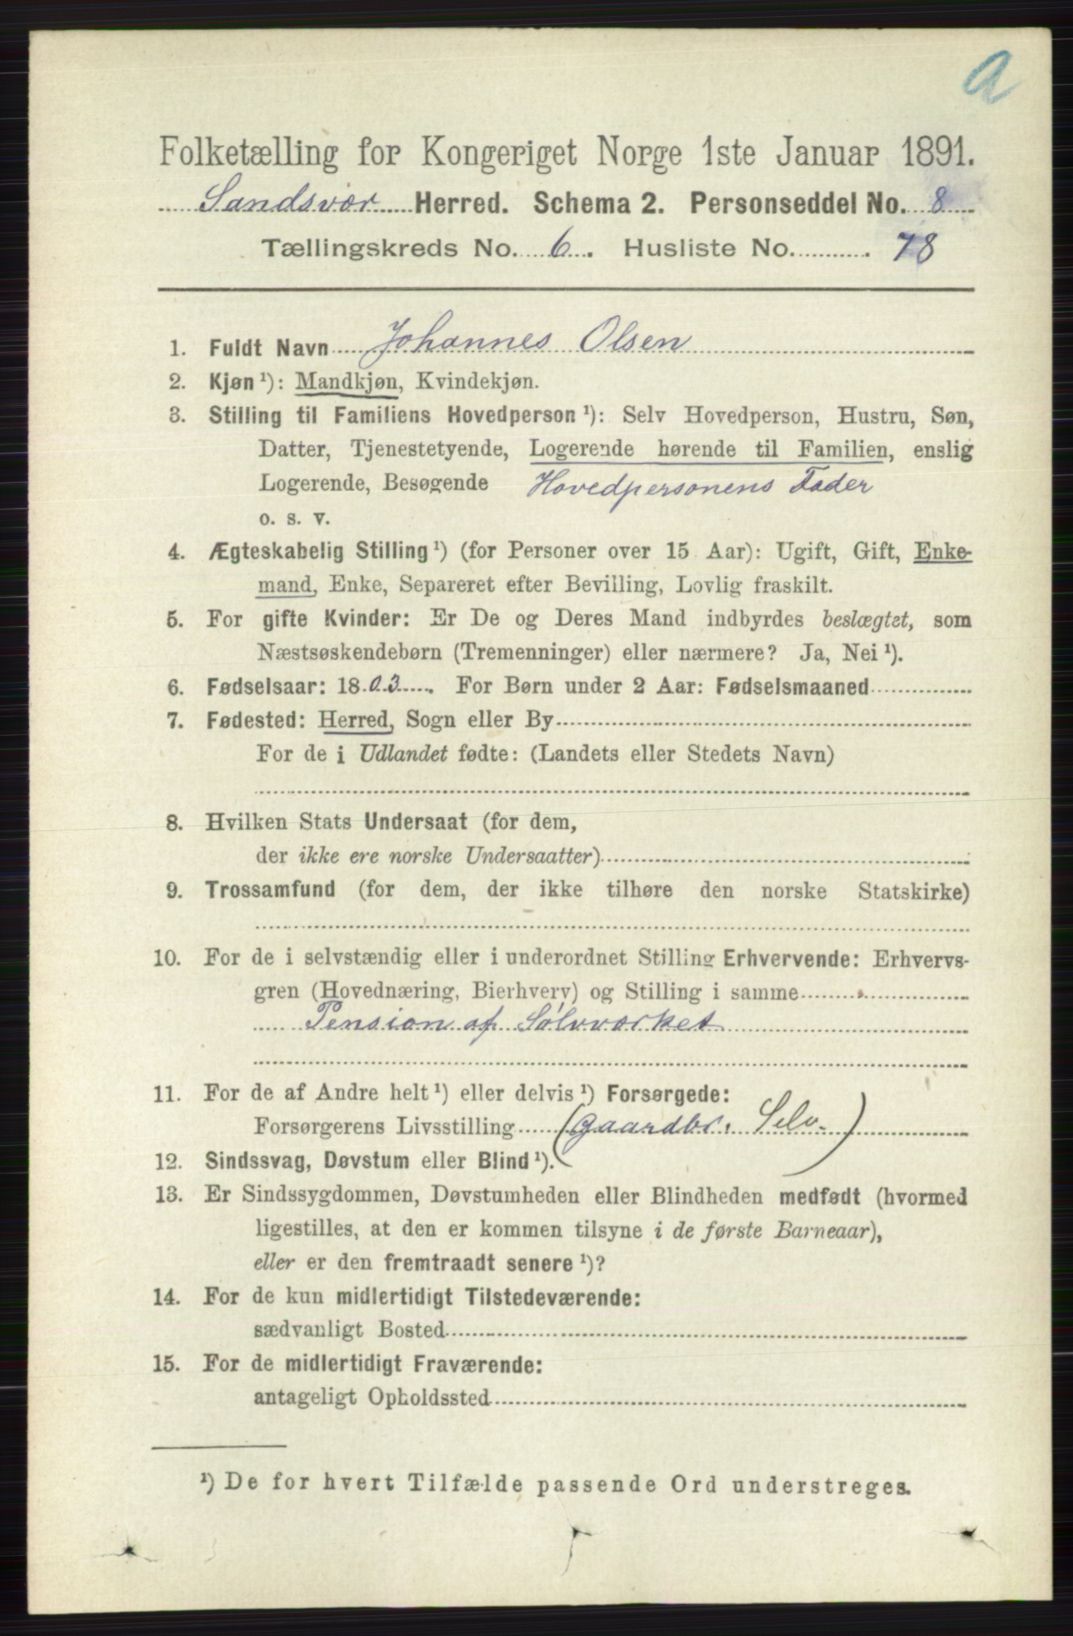 a
Folketælling for Kongeriget Norge 1ste Januar 1891.
Sandsvær Herred. Schema 2. Personseddel No. 8
Tællingskreds No. 6. Husliste No. 78
1. Fuldt Navn Johannes Olsen
2. Kjøn ¹): Mandkjøn, Kvindekjøn.
3. Stilling til Familiens Hovedperson ¹): Selv Hovedperson, Hustru, Søn,
Datter, Tjenestetyende, Logerende hørende til Familien, enslig
Logerende, Besøgende Hovedpersonens Fader
o. s. v.
4. Ægteskabelig Stilling ¹) (for Personer over 15 Aar): Ugift, Gift, Enke-
mand, Enke, Separeret efter Bevilling, Lovlig fraskilt.
5. For gifte Kvinder: Er De og Deres Mand indbyrdes beslægtet, som
Næstsøskendebørn (Tremenninger) eller nærmere? Ja, Nei ¹).
6. Fødselsaar: 1803. For Børn under 2 Aar: Fødselsmaaned
7. Fødested: Herred, Sogn eller By
For de i Udlandet fødte: (Landets eller Stedets Navn)
8. Hvilken Stats Undersaat (for dem,
der ikke ere norske Undersaatter)
9. Trossamfund (for dem, der ikke tilhøre den norske Statskirke)
10. For de i selvstændig eller i underordnet Stilling Erhvervende: Erhvervs-
gren (Hovednæring, Bierhverv) og Stilling i samme
Pension af Sølvværket
11. For de af Andre helt ¹) eller delvis ¹) Forsørgede:
Forsørgerens Livsstilling (Gaardbr. Selv.)
12. Sindssvag, Døvstum eller Blind ¹).
13. Er Sindssygdommen, Døvstumheden eller Blindheden medfødt (hvormed
ligestilles, at den er kommen tilsyne i de første Barneaar),
eller er den fremtraadt senere ¹)?
14. For de kun midlertidigt Tilstedeværende:
sædvanligt Bosted
15. For de midlertidigt Fraværende:
antageligt Opholdssted
¹) De for hvert Tilfælde passende Ord understreges.